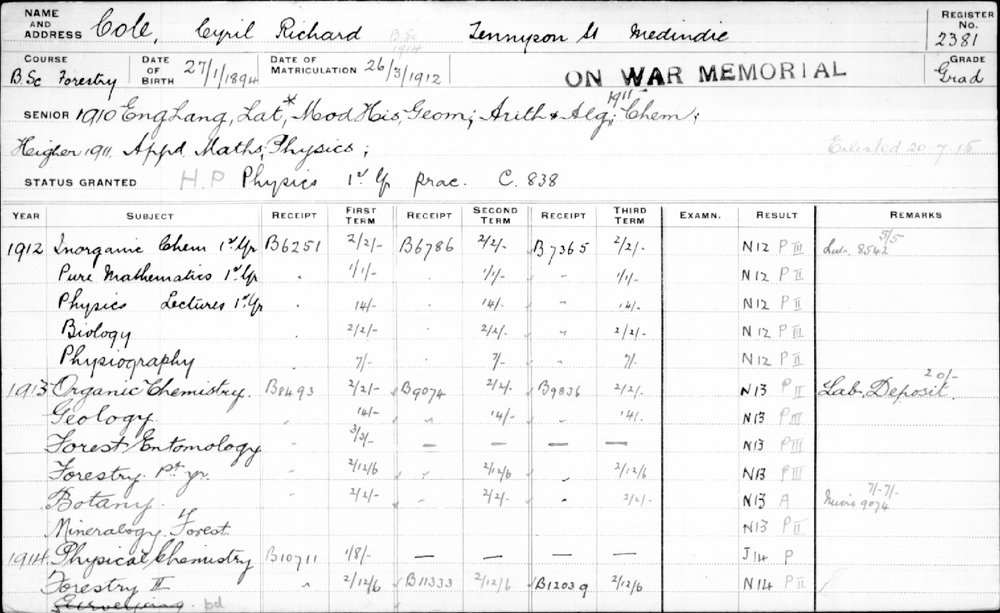 NAME AND ADDRESS Cole, Cyril Richard B.Sc 1914 Tennyson St Medindie REGISTER No. 2381
COURSE B.Sc Forestry DATE OF BIRTH 27/1/1894 DATE OF MATRICULATION 26/3/1912 ON WAR MEMORIAL GRADE Grad
SENIOR 1910 Eng Lang, Lat*, Mod His, Geom; Arith & Alg; 1911 Chem;
Higher 1911 Appd Maths; Physics; Enlisted 20-7-15
STATUS GRANTED H.P Physics 1st Yr prac. C.838
YEAR SUBJECT RECEIPT FIRST TERM RECEIPT SECOND TERM RECEIPT THIRD TERM EXAMN. RESULT REMARKS
1912 Inorganic Chem 1st Yr B6251 2/2/- B6786 2/2/- B7365 2/2/- N12 P III 8542 5/5
Pure Mathematics 1st Yr " 1/1/- " 1/1/- " 1/1/- N12 P II
Physics Lectures 1st Yr " 14/- " 14/- " 14/- N12 P II
Biology " 2/2/- " 2/2/- " 2/2/- N12 P III
Physiography " 7/- " 7/- " 7/- N12 P II
1913 Organic Chemistry. B8493 2/2/- B9074 2/2/- B9836 2/2/- N13 P II Lab. Deposit. 20/-
Geology " 14/- " 14/- " 14/- N13 P III
Forest Entomology " 3/3/- — — — — N13 P III
Forestry. Pt yr. " 2/12/6 " 2/12/6 " 2/12/6 N13 P III
Botany. " 2/2/- " 2/2/- " 2/2/- N13 A 9074 7/-7/-
Mineralogy Forest N13 P II
1914 Physical Chemistry B10711 1/8/- — — — — J14 P
Forestry II " 2/12/6 B11333 2/12/6 B12039 2/12/6 N14 P II
Surveying. bd